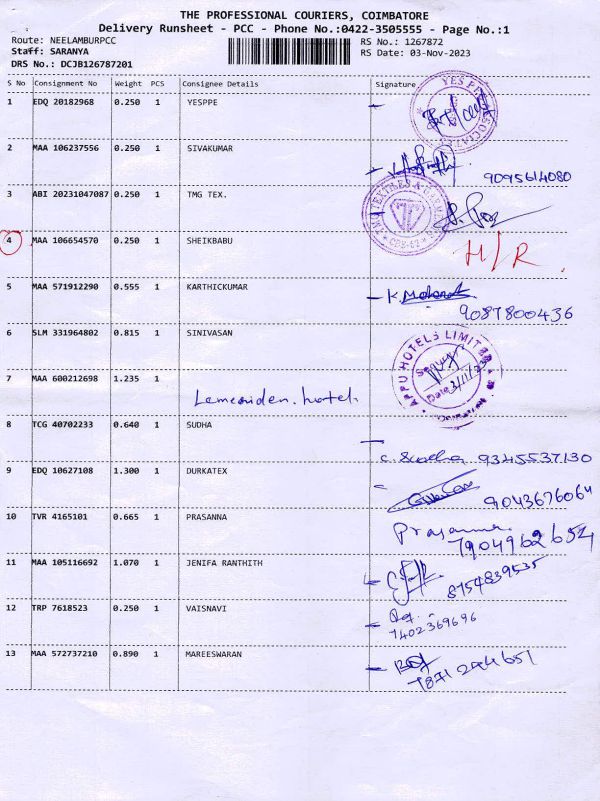 THE PROFESSIONAL COURIERS, COIMBATORE
Delivery Runsheet - PCC - Phone No.:0422-3505555 - Page No.:1
Route: NEELAMBURPCC RS No.: 1267872
Staff: SARANYA RS Date: 03-Nov-2023
DRS No.: DCJB126787201
S No Consignment No Weight PCS Consignee Details Signature
1 EDQ 20182968 0.250 1 YESPPE
2 MAA 106237556 0.250 1 SIVAKUMAR
9095614080
3 ABI 20231047087 0.250 1 TMG TEX.
4 MAA 106654570 0.250 1 SHEIKBABU H/R
5 MAA 571912290 0.555 1 KARTHICKUMAR
9087800436
6 SLM 331964802 0.815 1 SINIVASAN
APPU HOTELS LIMITED
7 MAA 600212698 1.235 1
Lemeriden. hotel.
8 TCG 40702233 0.640 1 SUDHA
9345537130
9 EDQ 10627108 1.300 1 DURKATEX
9043676064
10 TVR 4165101 0.665 1 PRASANNA Prasanna
7904962654
11 MAA 105116692 1.070 1 JENIFA RANTHITH
8754839535
12 TRP 7618523 0.250 1 VAISNAVI
7402369696
13 MAA 572737210 0.890 1 MAREESWARAN
7871244651